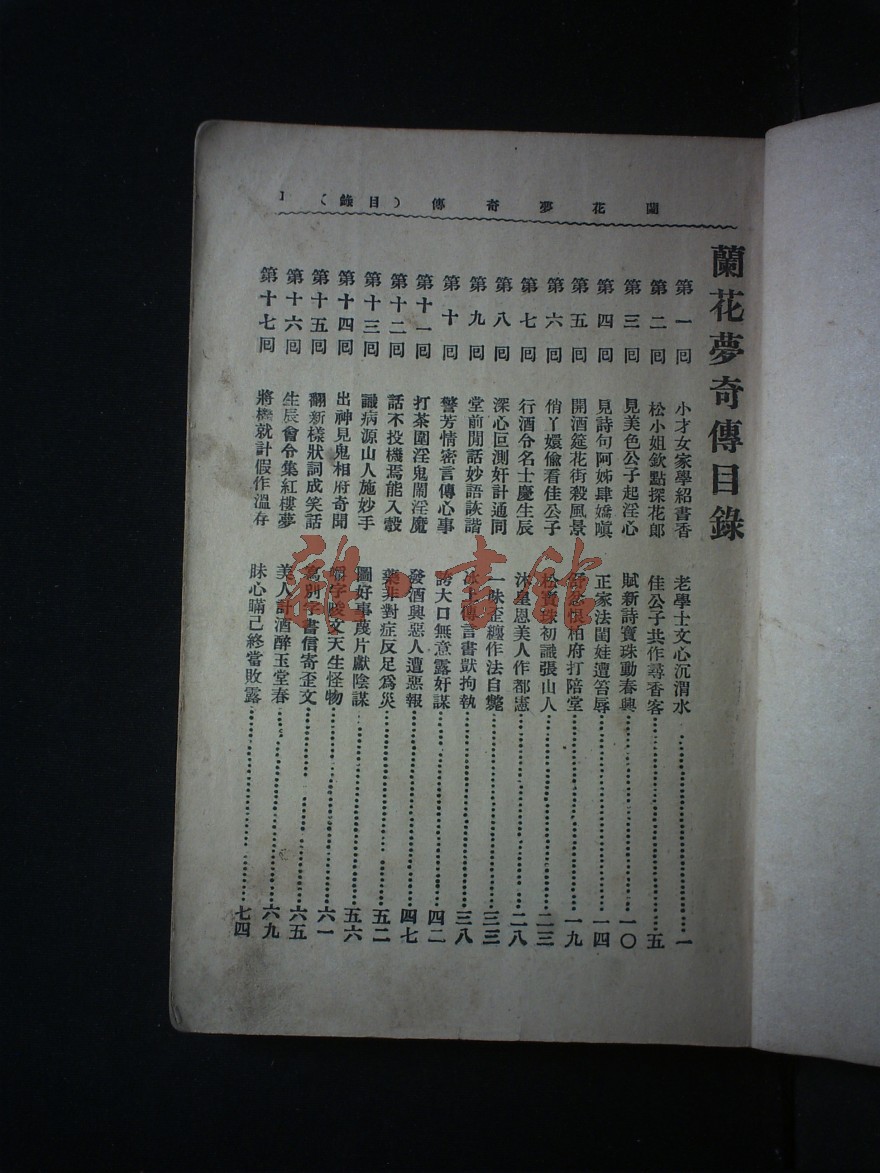 蘭花夢奇傳(目錄) 1
蘭花夢奇傳目錄
第一回 小才女家學紹書香 老學士文心沉渭水 一
第二回 松小姐欽點探花郎 佳公子共作尋香客 五
第三回 見美色公子起淫心 賦新詩寶珠動春興 一〇
第四回 見詩句阿姊肆嬌嗔 正家法閨娃遭笞辱 一四
第五回 開酒筵花街殺風景 忿恨柏府打陪堂 一九
第六回 俏丫嬛偸看佳公子 松寶珠初識張山人 二三
第七回 行酒令名士慶生辰 沐皇恩美人作都憲 二八
第八回 深心叵測奸計通同 一味歪纏作法自斃 三三
第九回 堂前閒話妙語詼諧 冰上傳言書獃拘執 三八
第十回 警芳情密言傳心事 誇大口無意露奸謀 四二
第十一回 打茶圍淫鬼鬧淫魔 發酒興惡人遭惡報 四七
第十二回 話不投機焉能入彀 藥非對症反足爲災 五二
第十三回 識病源山人施妙手 圖好事蔑片獻陰謀 五六
第十四回 出神見鬼相府奇聞 嚼字咬文天生怪物 六一
第十五回 翻新樣狀詞成笑話 寫別字書信寄歪文 六五
第十六回 生辰會令集紅樓夢 美人計酒醉玉堂春 六九
第十七回 將機就計假作溫存 昧心瞞己終當敗露 七四
書館